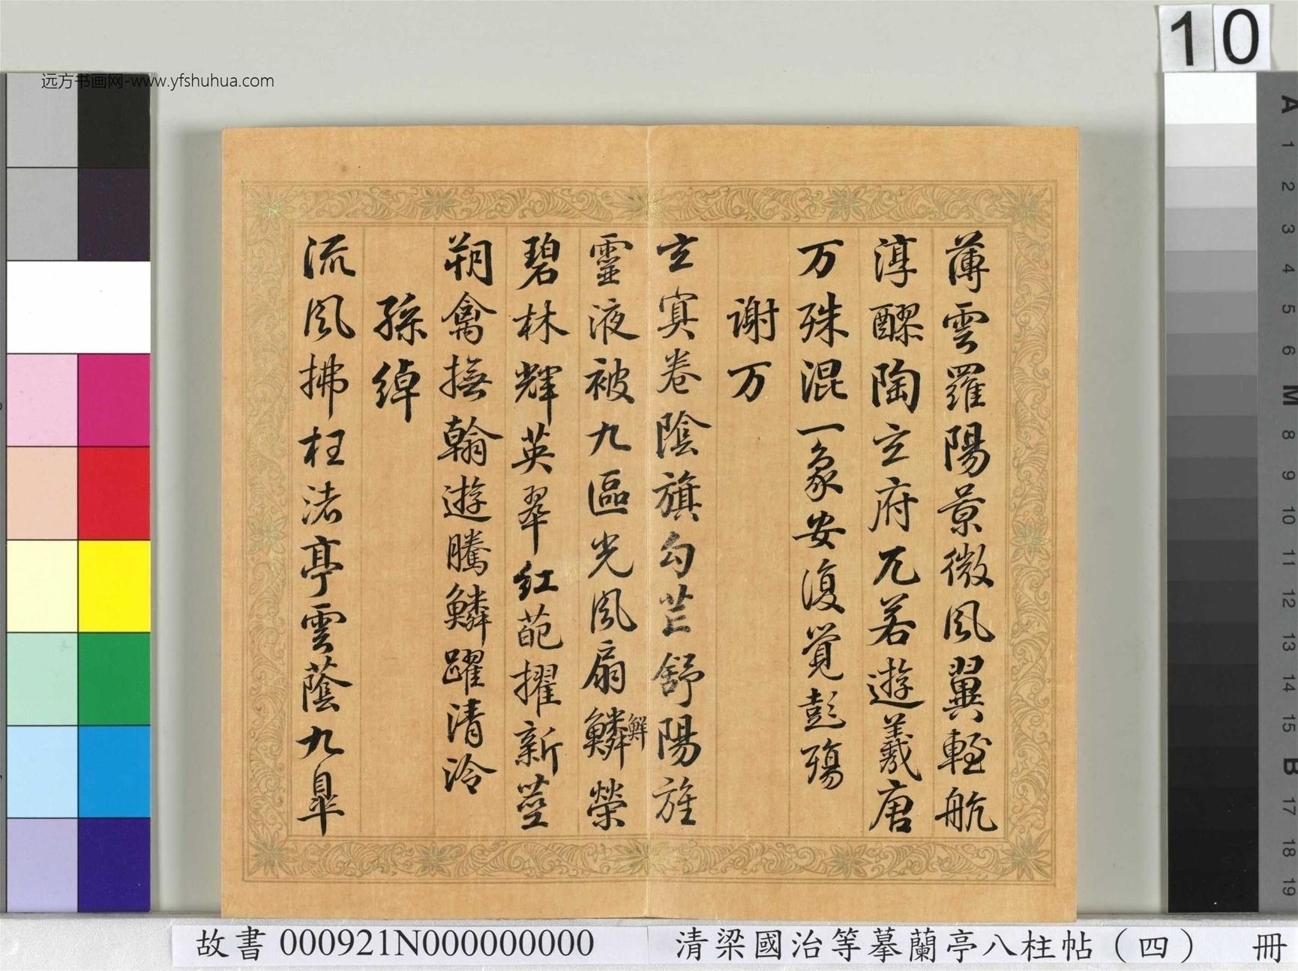 远方书画网-www.yfshuhua.com
10
薄雲羅陽景微風翼輕航
淳醪陶玄府兀若遊羲唐
万殊混一象安復覺彭殤
謝万
玄冥卷陰旗勾芒舒陽旌
靈液被九區光風扇鱗榮
鮮
碧林輝英翠紅葩擢新莖
朔禽撫翰遊騰鱗躍清泠
孫綽
流風拂枉渚亭雲蔭九皋
A 1 2 3 4 5 6 M 8 9 10 11 12 13 14 15 B 17 18 19
故書 000921N000000000 清梁國治等摹蘭亭八柱帖（四） 冊